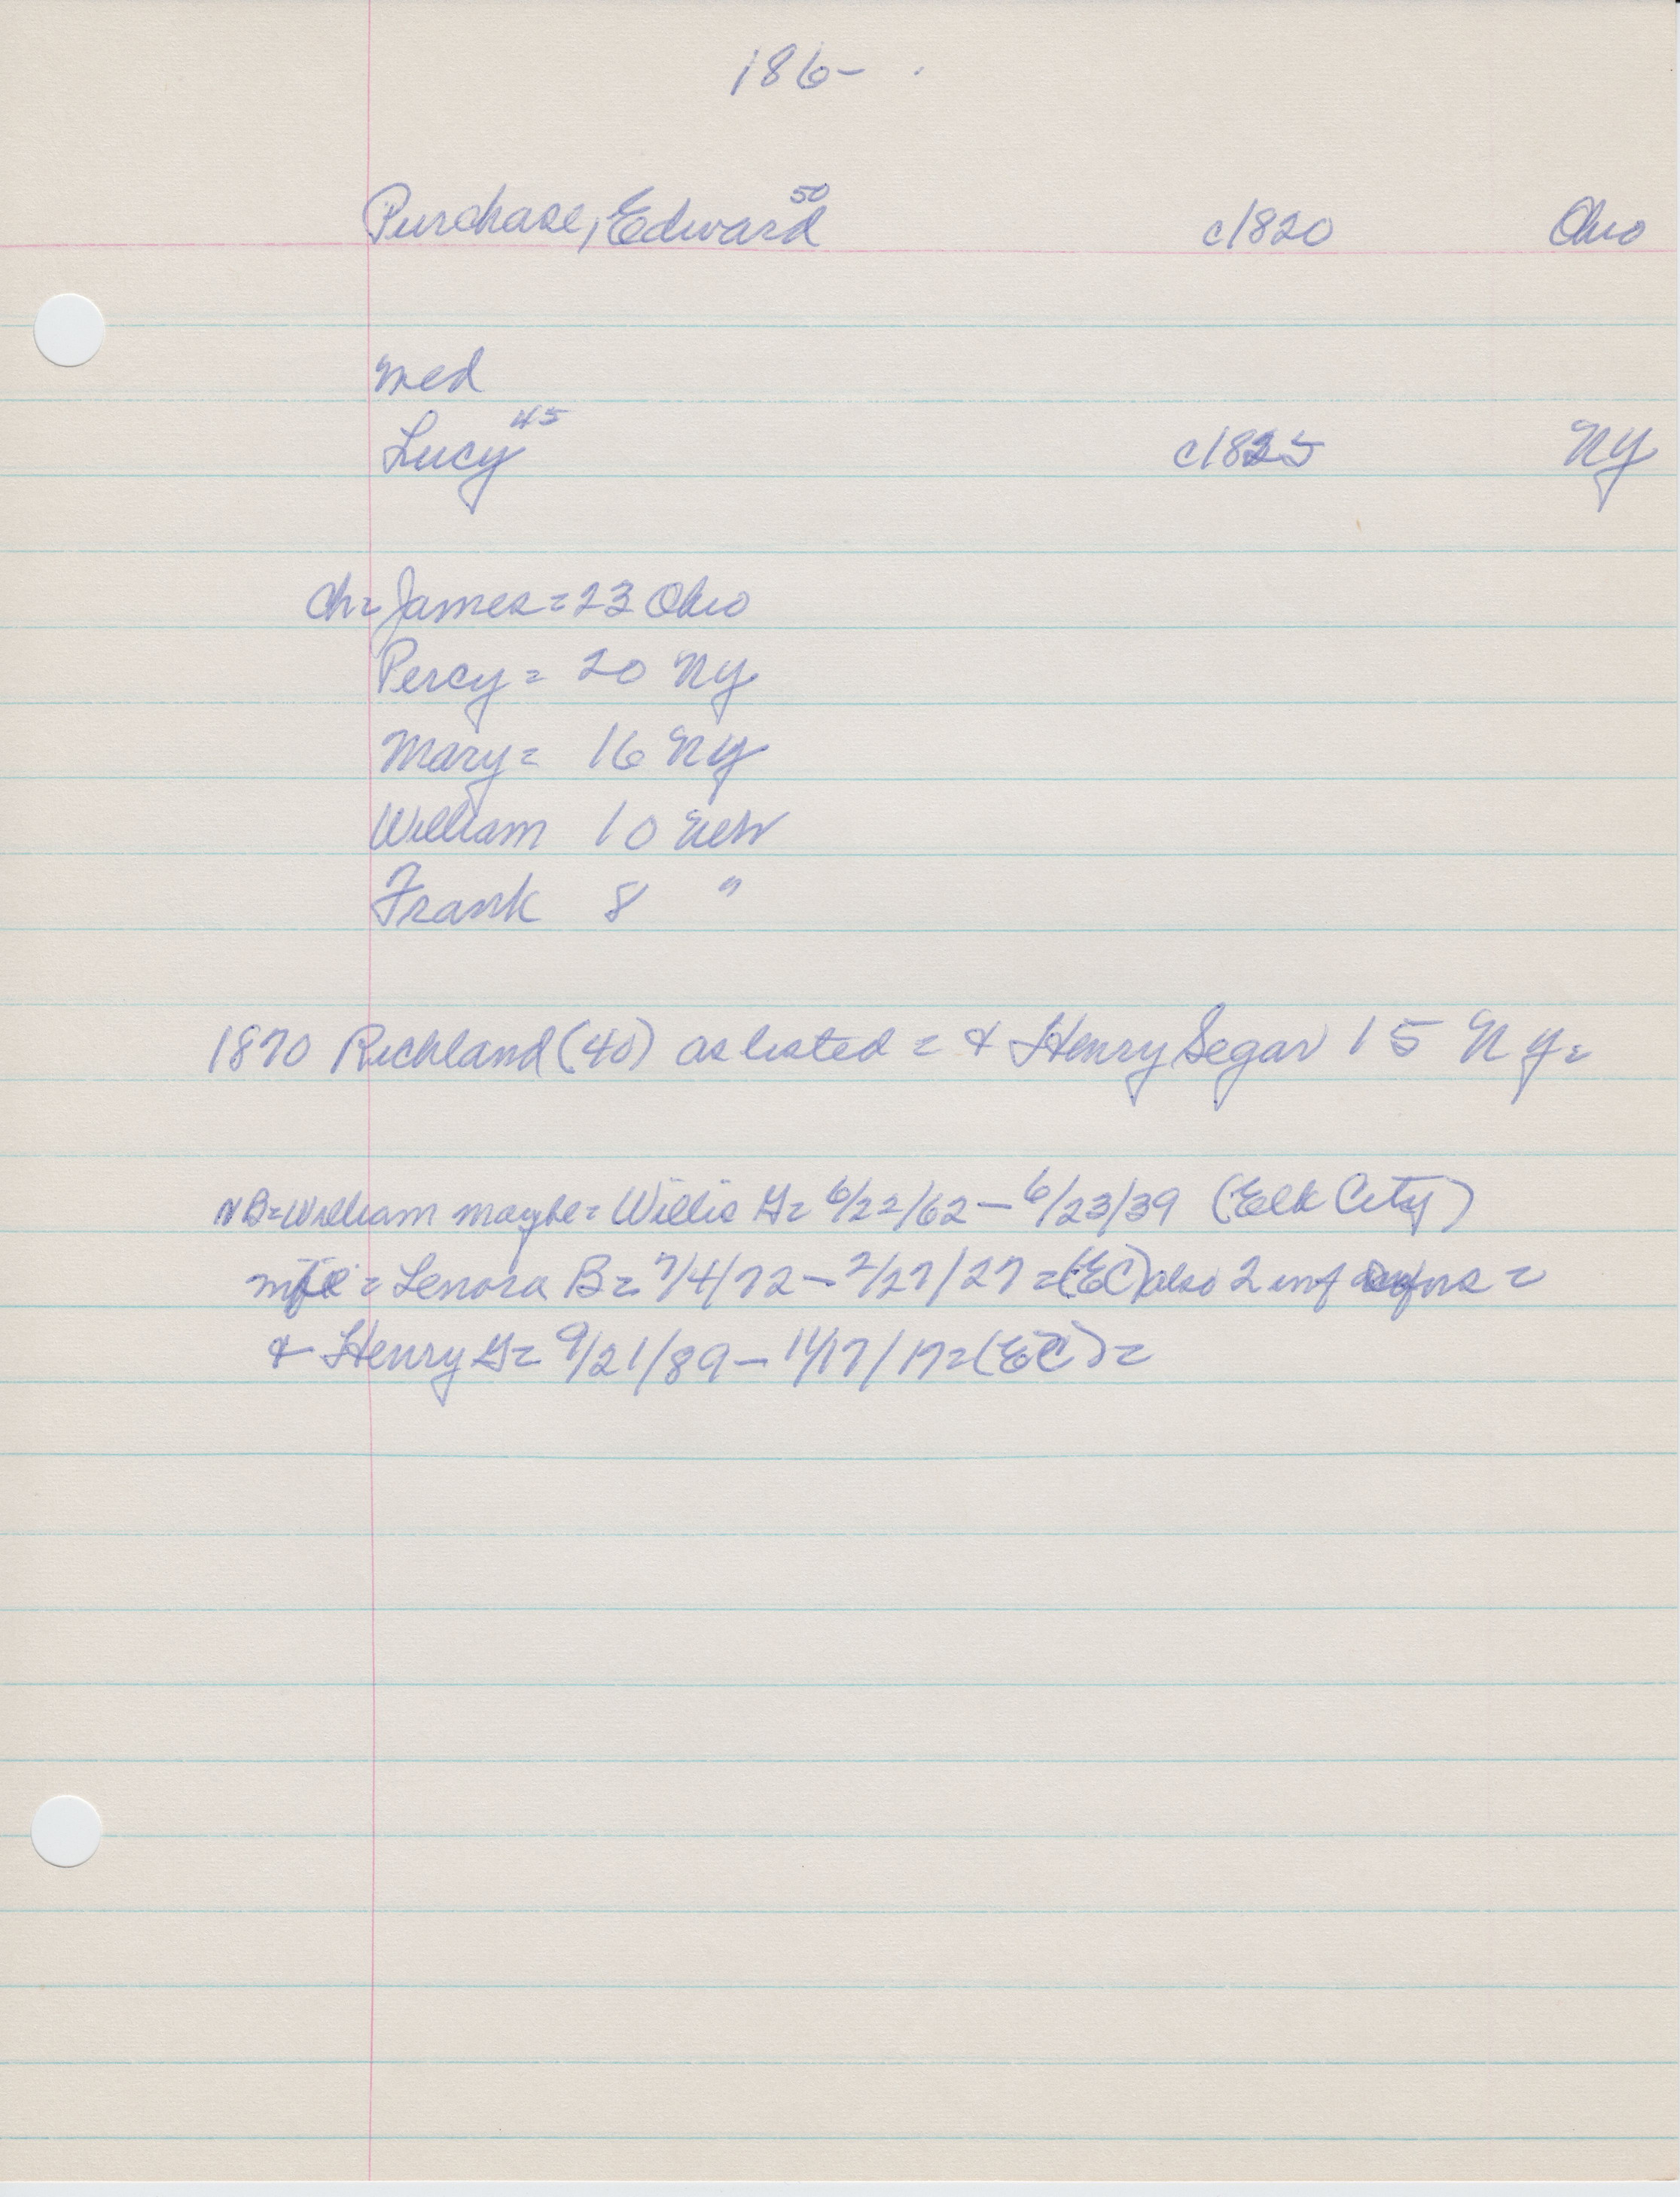 186-
Purchase, Edward 50 c/1820 Ohio
med
Lucy 45 c/1825 NY
Ch = James = 23 Ohio
Percy = 20 NY
Mary = 16 NY
William 10
Frank 8 "
1870 Richland (40) as listed = & Henry Segar 15 NY =
NB = William maybe = Willis G = 6/22/62 - 6/23/39 (Elk City)
= Lenora B = 7/4/72 - 2/27/27 = (EC) also 2 inf =
& Henry G = 9/21/89 - 11/17/17 = (EC) =